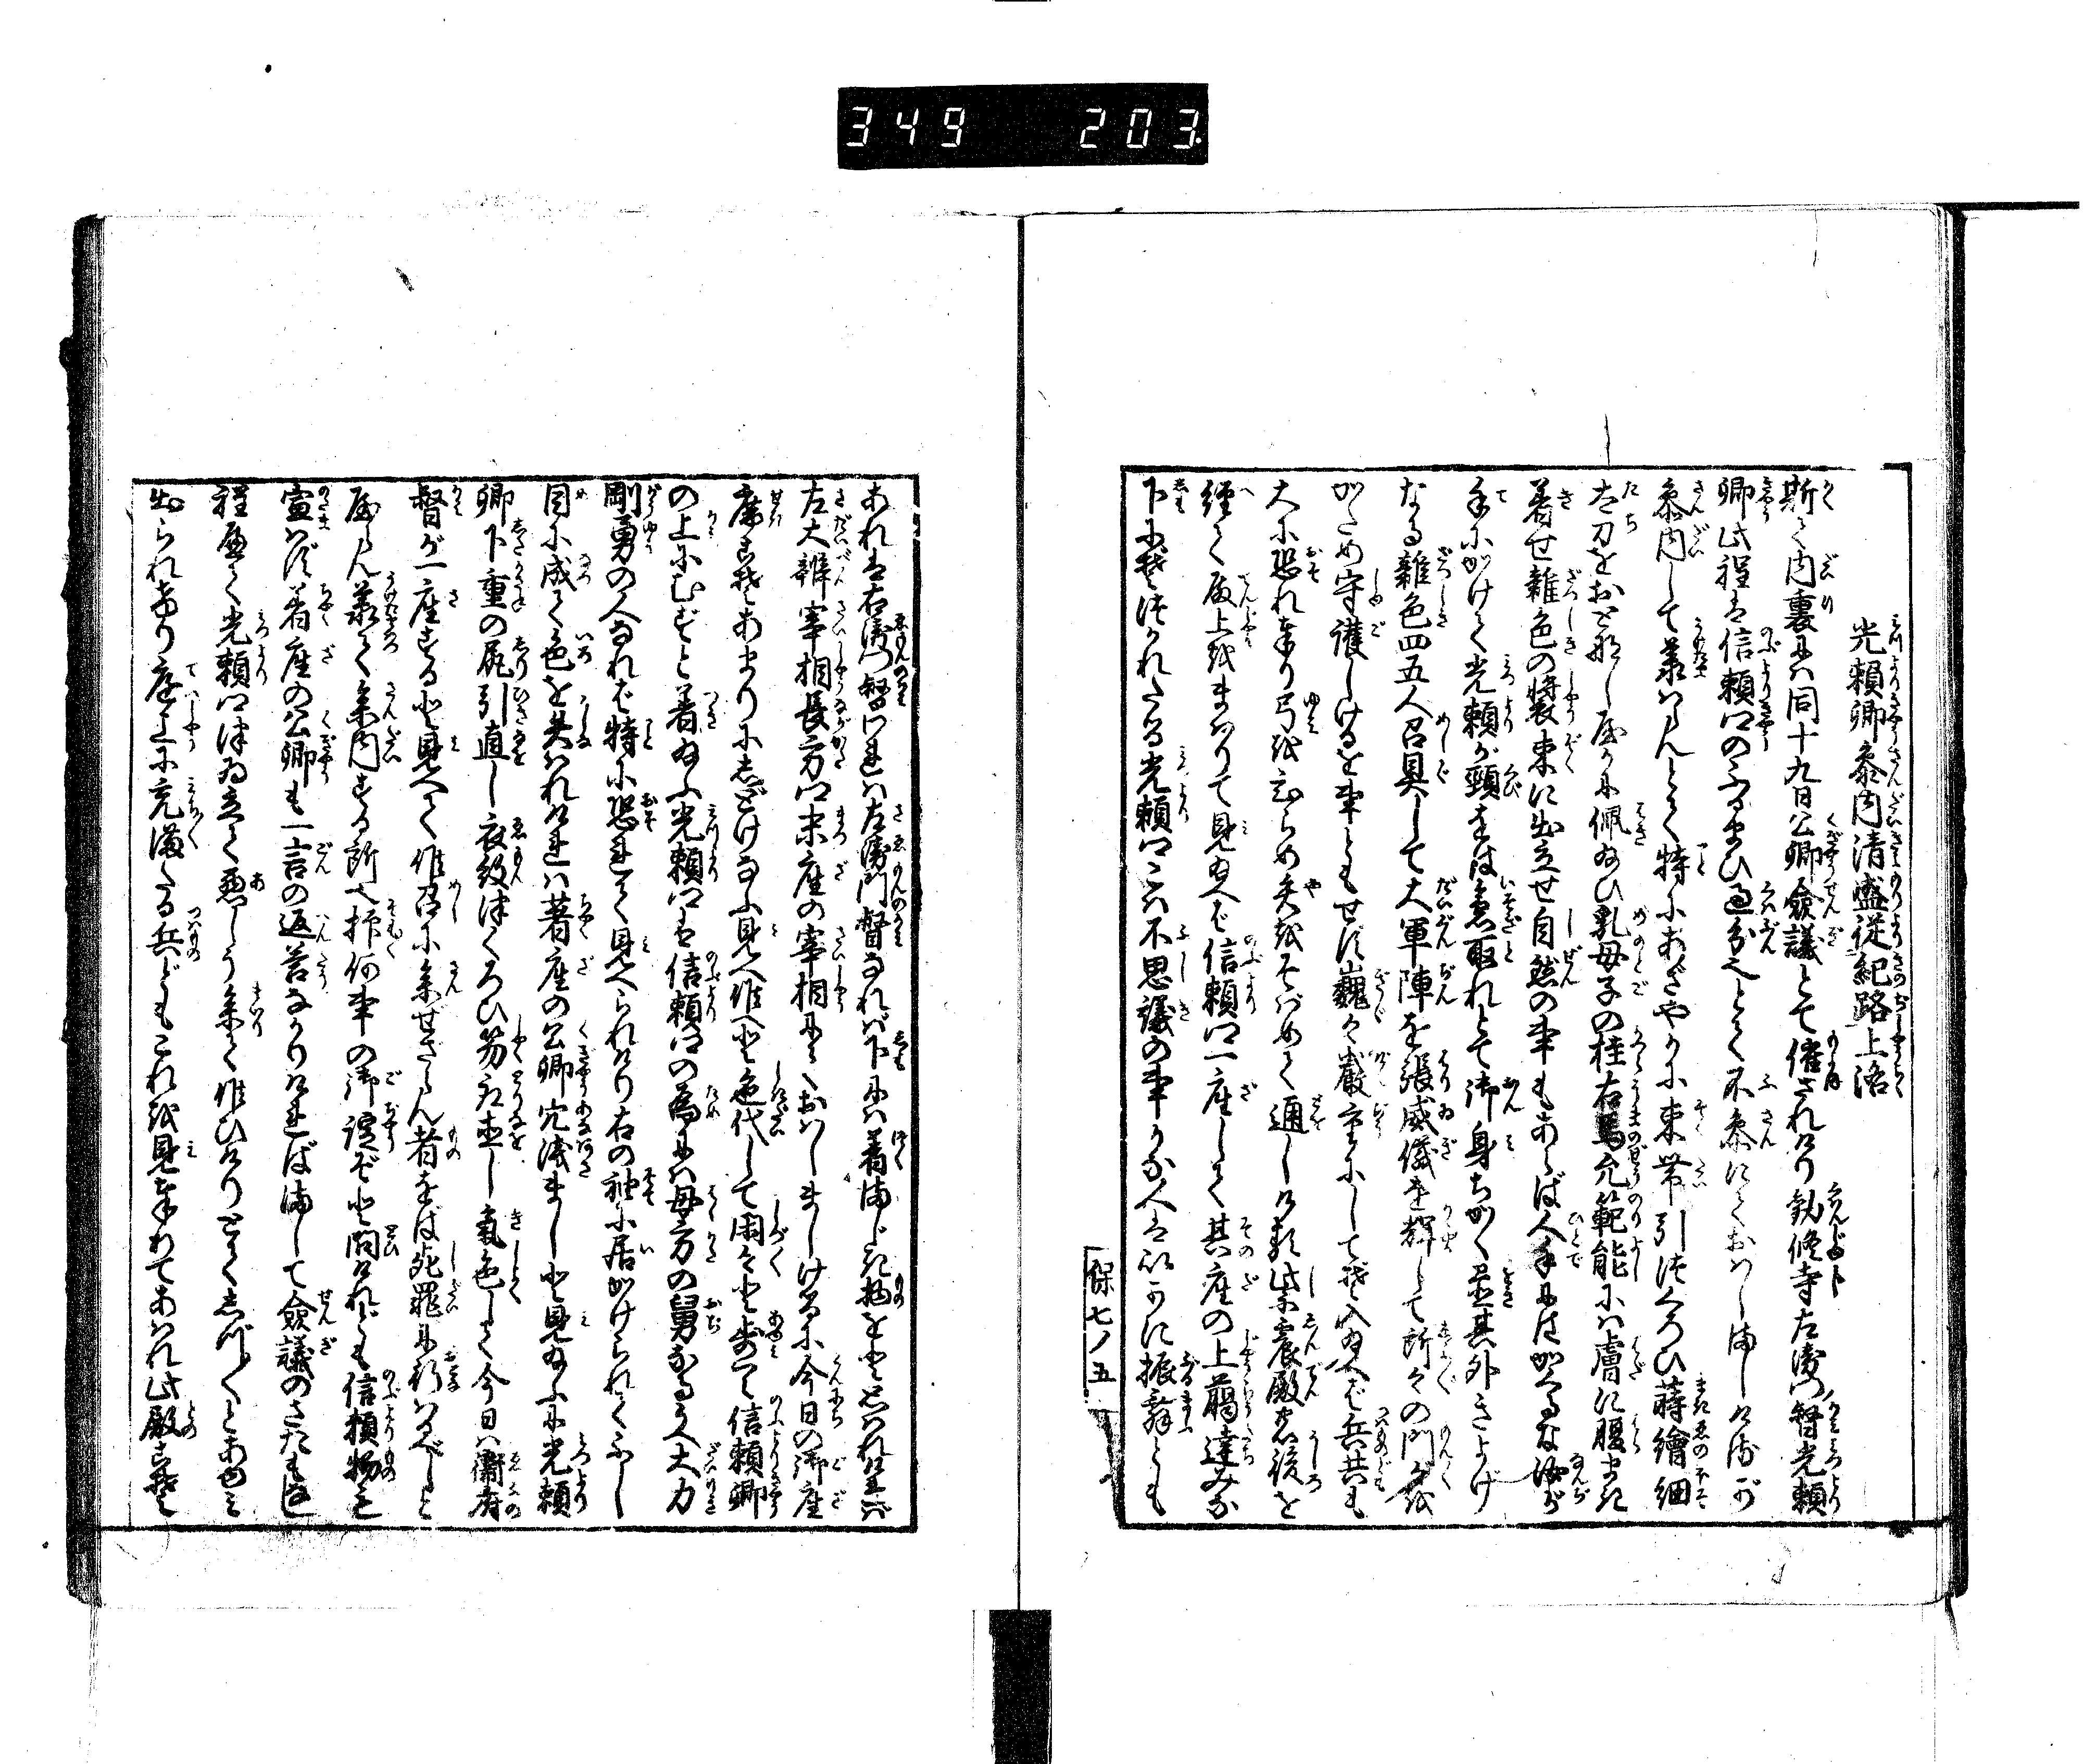 349 203
光頼卿参内清盛従紀路上洛
斯て内裏には同十九日公卿僉議とて催されけり勧修寺左衛門督光頼
卿此程は信頼卿のふるまひ過分也とて不参にておはしましけるが
参内して承はらんとて特にあざやかに束帯引つくろひ蒔繪細
太刀をおとなしやかに佩給ひ乳母子の桂右馬允範能には膚に腹まき
着せ雑色の装束に出立せ自然の事もあらば人手にはかくるな汝が
手にかけて光頼が頸をば急取れとて御身ちかく置其外きよげ
なる雑色四五人召具して大軍陣を張威儀を輝して所々の門々を
かため守護しけるを事ともせず巍々嚴重にしてぞ入給へば兵共も
大に恐れ奉り弓をひらめ矢をそばめて通しける紫宸殿の後を
経て殿上をまはりて見給へば信頼卿一座して其座の上臈達みな
下にぞつかれたる光頼卿こは不思議の事かな人はいかに振舞とも
保七ノ五
あれは右衛門督これは左衛門督なれば下には着まじき物をと思はれければ
左大辨宰相長方卿末座の宰相にておはしましけるに今日の御座
席こそあまりにしどけなふ見へ候へと色代して閑々と歩て信頼卿
の上にむずと着給ふ光頼卿は信頼卿の為には母方の舅なるうへ大力
剛勇の人なれば特に恐れて見へられけり右の袖に居かけられてふし
目に成て色を失はれければ着座の公卿穴浅ましと見給ふに光頼
卿下重の尻引直し衣紋つくろひ笏取直し氣色して今日は衛府
督が一座すると見へて候召に参ぜざらん者をば死罪に行はるべしと
やらん承て参内する所也抑何事の御諚ぞと問けれども信頼物も
宣はず着座の公卿も一言の返答なかりければまして僉議のさたもなし
程歴て光頼卿つゐ立て悪しう参て候ひけりとてしづ〳〵とあゆみ
出られけり庭上に充満たる兵どもこれを見奉りてあはれ此殿こそ